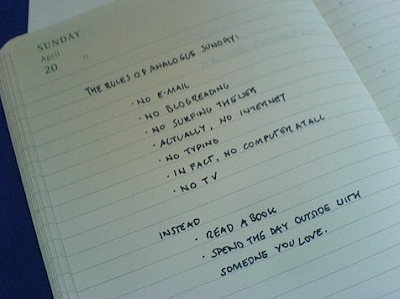 SUNDAY
April
20
THE RULES OF ANALOGUE SUNDAY:
· NO E-MAIL
· NO BLOGREADING
· NO SURFING THE WEB
· ACTUALLY, NO INTERNET
· NO TYPING
· IN FACT, NO COMPUTER AT ALL
· NO TV
INSTEAD
· READ A BOOK
· SPEND THE DAY OUTSIDE WITH
SOMEONE YOU LOVE.